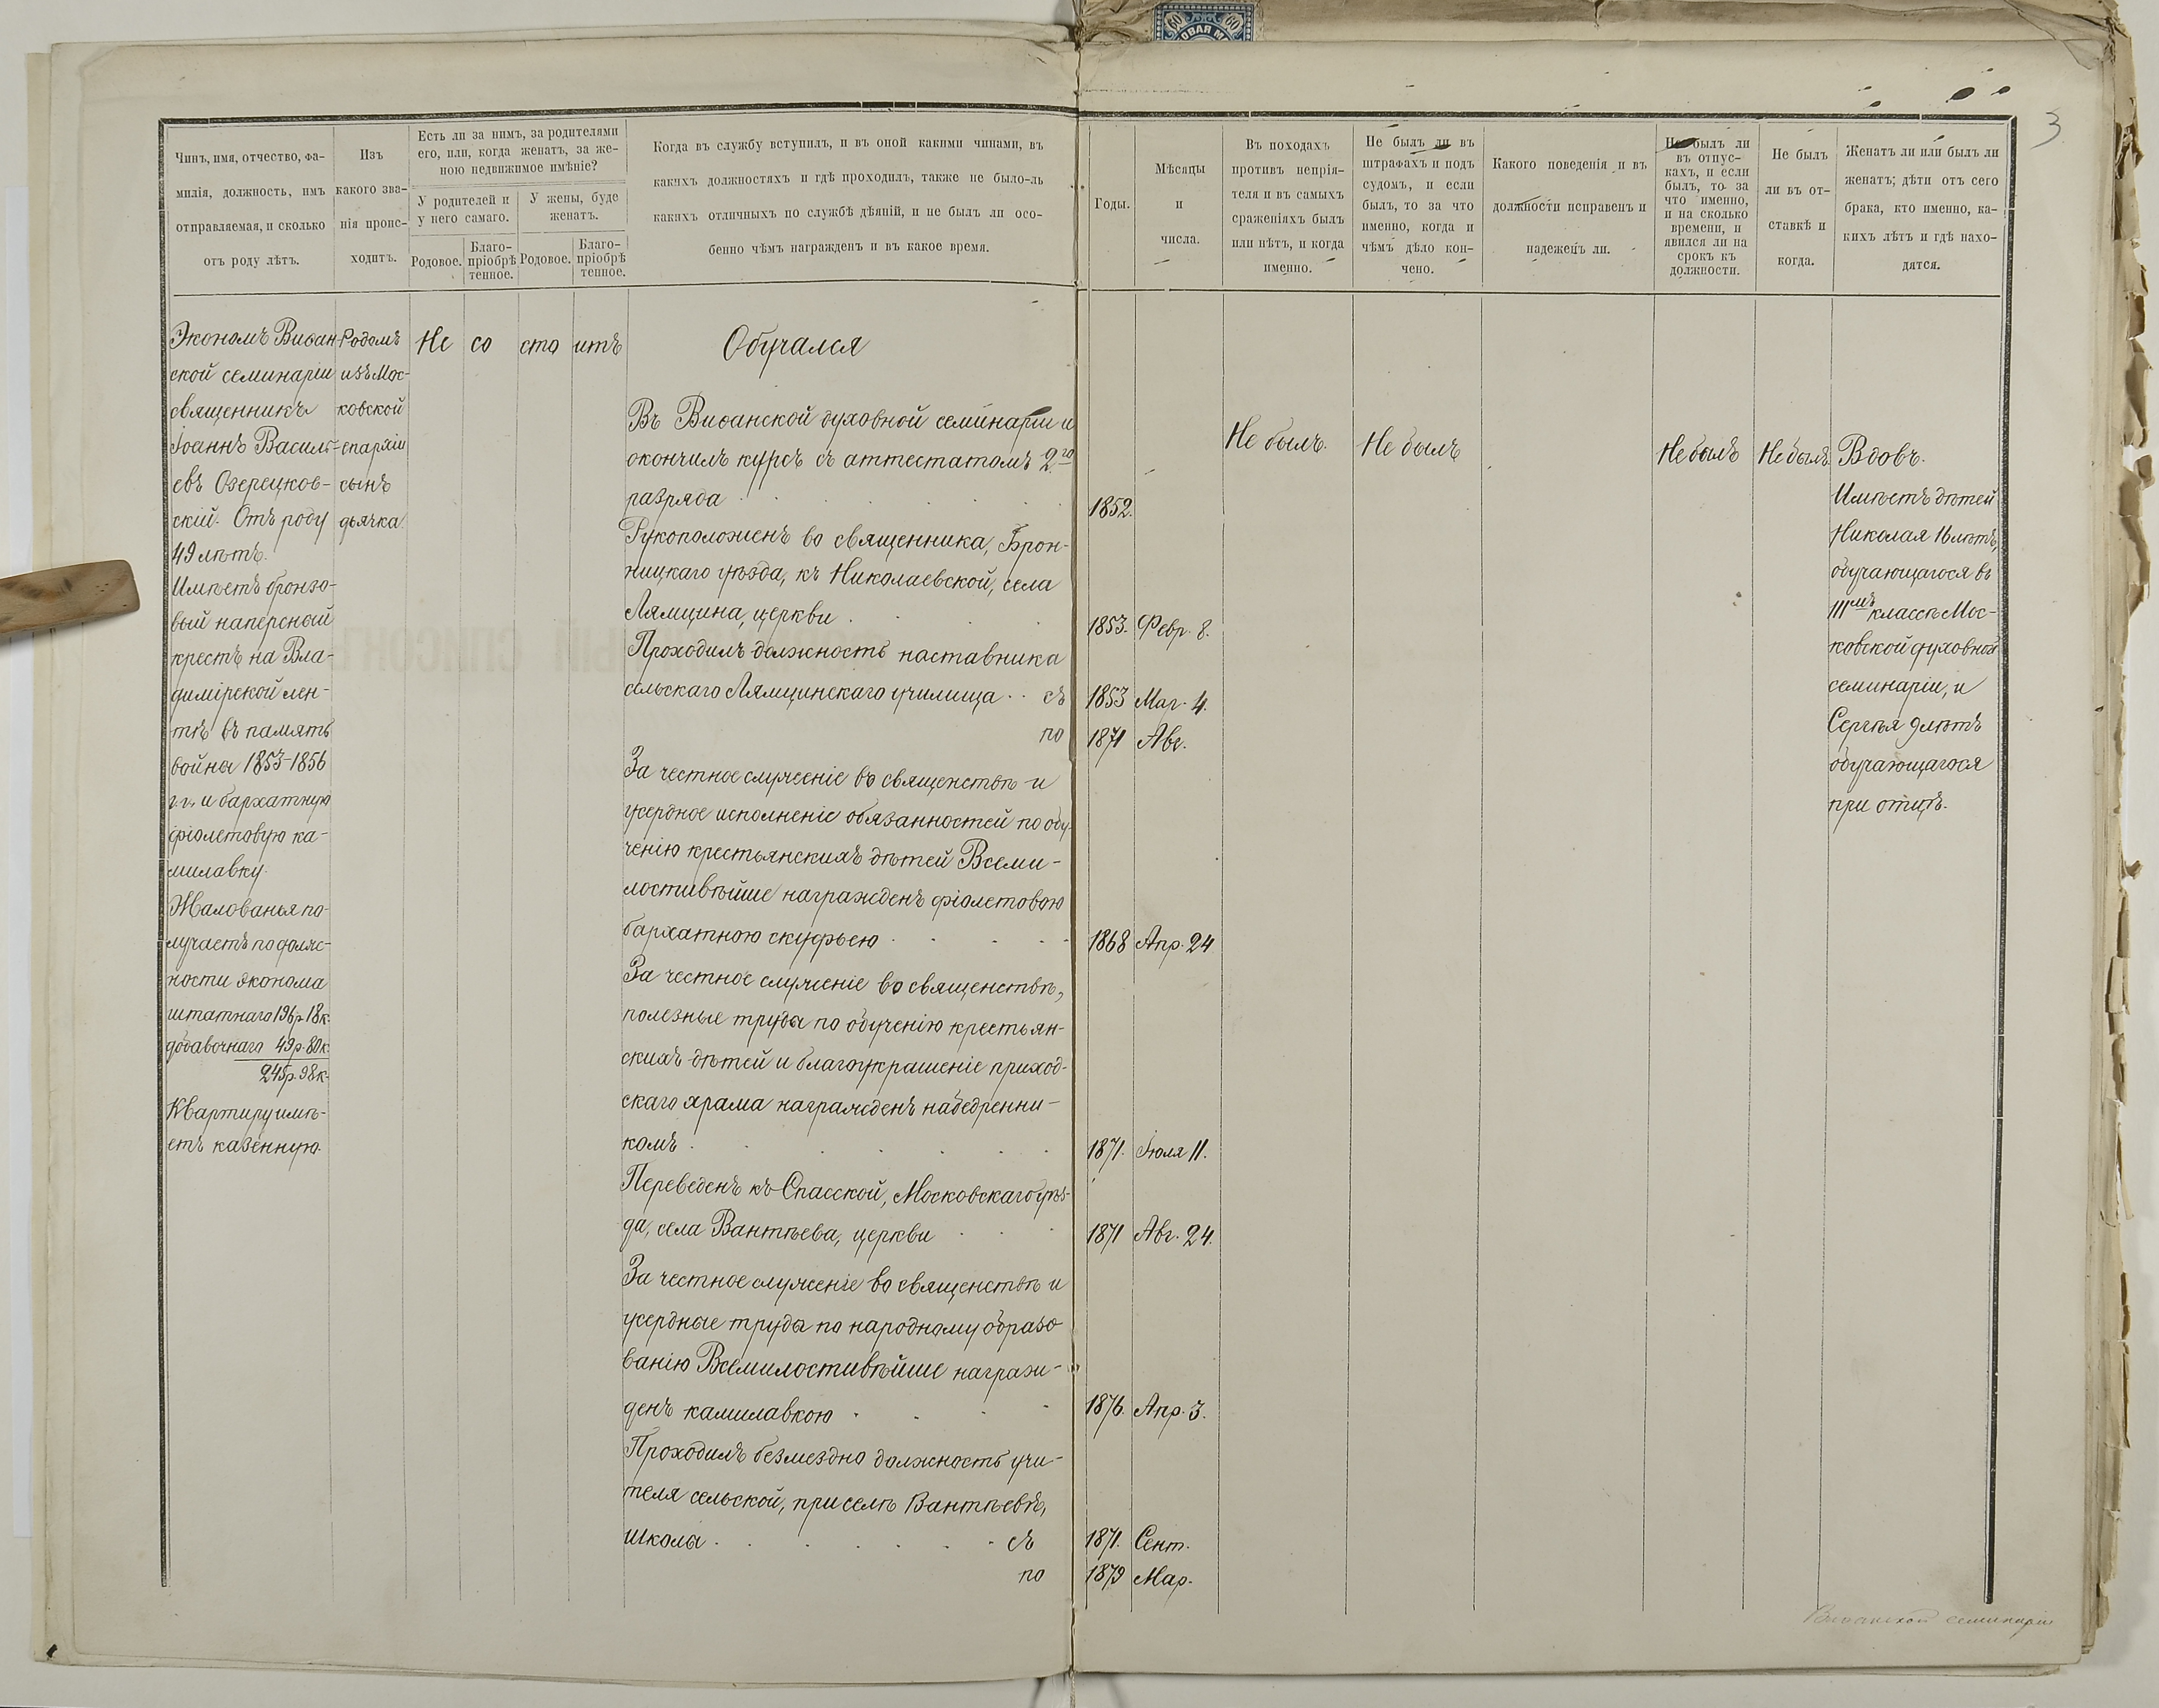 60 60
ОВАЯ М
3
Чинъ, имя, отчество, фа-
милія, должность, имъ
отправляемая, и сколько
отъ роду лѣтъ.
Изъ
какого зва-
нія проис-
ходитъ.
Есть ли за нимъ, за родителями
его, или, когда женатъ, за же-
ною недвижимое имѣніе?
У родителей и
у него самаго.
У жены, буде
женатъ.
Родовое.
Благо-
пріобрѣ
тенное.
Родовое.
Благо-
пріобрѣ
тенное.
Когда въ службу вступилъ, и въ оной какими чинами, въ
какихъ должностяхъ и гдѣ проходилъ, также не было-ль
какихъ отличныхъ по службѣ дѣяній, и не былъ ли осо-
бенно чѣмъ награжденъ и въ какое время.
Годы.
Мѣсяцы
и
числа.
Въ походахъ
противъ непрія-
теля и въ самыхъ
сраженіяхъ былъ
или нѣтъ, и когда
именно.
Не былъ ли въ
штрафахъ и подъ
судомъ, и если
былъ, то за что
именно, когда и
чѣмъ дѣло кон-
чено.
Какого поведенія и въ
должности исправенъ и
надеженъ ли.
Не былъ ли
въ отпус-
кахъ, и если
былъ, то за
что именно,
и на сколько
времени, и
явился ли на
срокъ къ
должности.
Не былъ
ли въ от-
ставкѣ и
когда.
Женатъ ли или былъ ли
женатъ; дѣти отъ сего
брака, кто именно, ка-
кихъ лѣтъ и гдѣ нахо-
дятся.
Экономъ Виѳан-
ской семинаріи
священникъ
Іоаннъ Василь-
евъ Озерецков-
скій. Отъ роду
49 лѣтъ.
Имѣетъ бронзо-
вый наперсный
крестъ на Вла-
димірской лен-
тѣ въ память
войны 1853-1856
г.г. и бархатную
фіолетовую ка-
милавку.
Жалованья по-
лучаетъ по долж-
ности эконома
штатнаго 196 р. 18 к.
добавочнаго 49 р. 80 к.
245 р. 98 к.
Квартиру имѣ-
етъ казенную.
Родомъ
изъ Мос-
ковской
епархіи
сынъ
дьячка
Не со сто итъ
Обучался
Въ Виѳанской духовной семинаріи и
окончилъ курсъ съ аттестатомъ 2го
разряда
1852.
Рукоположенъ во священника, Брон-
ницкаго уѣзда, къ Николаевской, села
Лямцина, церкви
1853. Февр. 8.
Проходилъ должность наставника
сельскаго Лямцинскаго училища съ
1853 Мар. 4.
по 1871 Авг.
За честное служеніе во священствѣ и
усердное исполненіе обязанностей по обу-
ченію крестьянскихъ дѣтей Всеми-
лостивѣйше награжденъ фіолетовою
бархатною скуфьею
1868 Апр. 24
За честное служеніе во священствѣ,
полезные труды по обученію крестьян-
скихъ дѣтей и благоукрашеніе приход-
скаго храма награжденъ набедренни-
комъ
1871. Іюля 11.
Переведенъ къ Спасской, Московскаго уѣз-
да, села Вантѣева, церкви
1871 Авг. 24.
За честное служеніе во священствѣ и
усердные труды по народному образо
ванію Всемилостивѣйше награж-
денъ камилавкою
1876. Апр. 3.
Проходилъ безмездно должность учи-
теля сельской, при селѣ Вантѣевѣ,
школы съ
1871. Сент.
по 1879 Мар.
Не былъ.
Не былъ
Не былъ
Не былъ.
Вдовъ.
Имѣетъ дѣтей
Николая 16 лѣтъ,
обучающагося въ
IIIмъ классѣ Мос-
ковской духовной
семинаріи, и
Сергѣя 9 лѣтъ
обучающагося
при отцѣ.
Виѳанской семинаріи